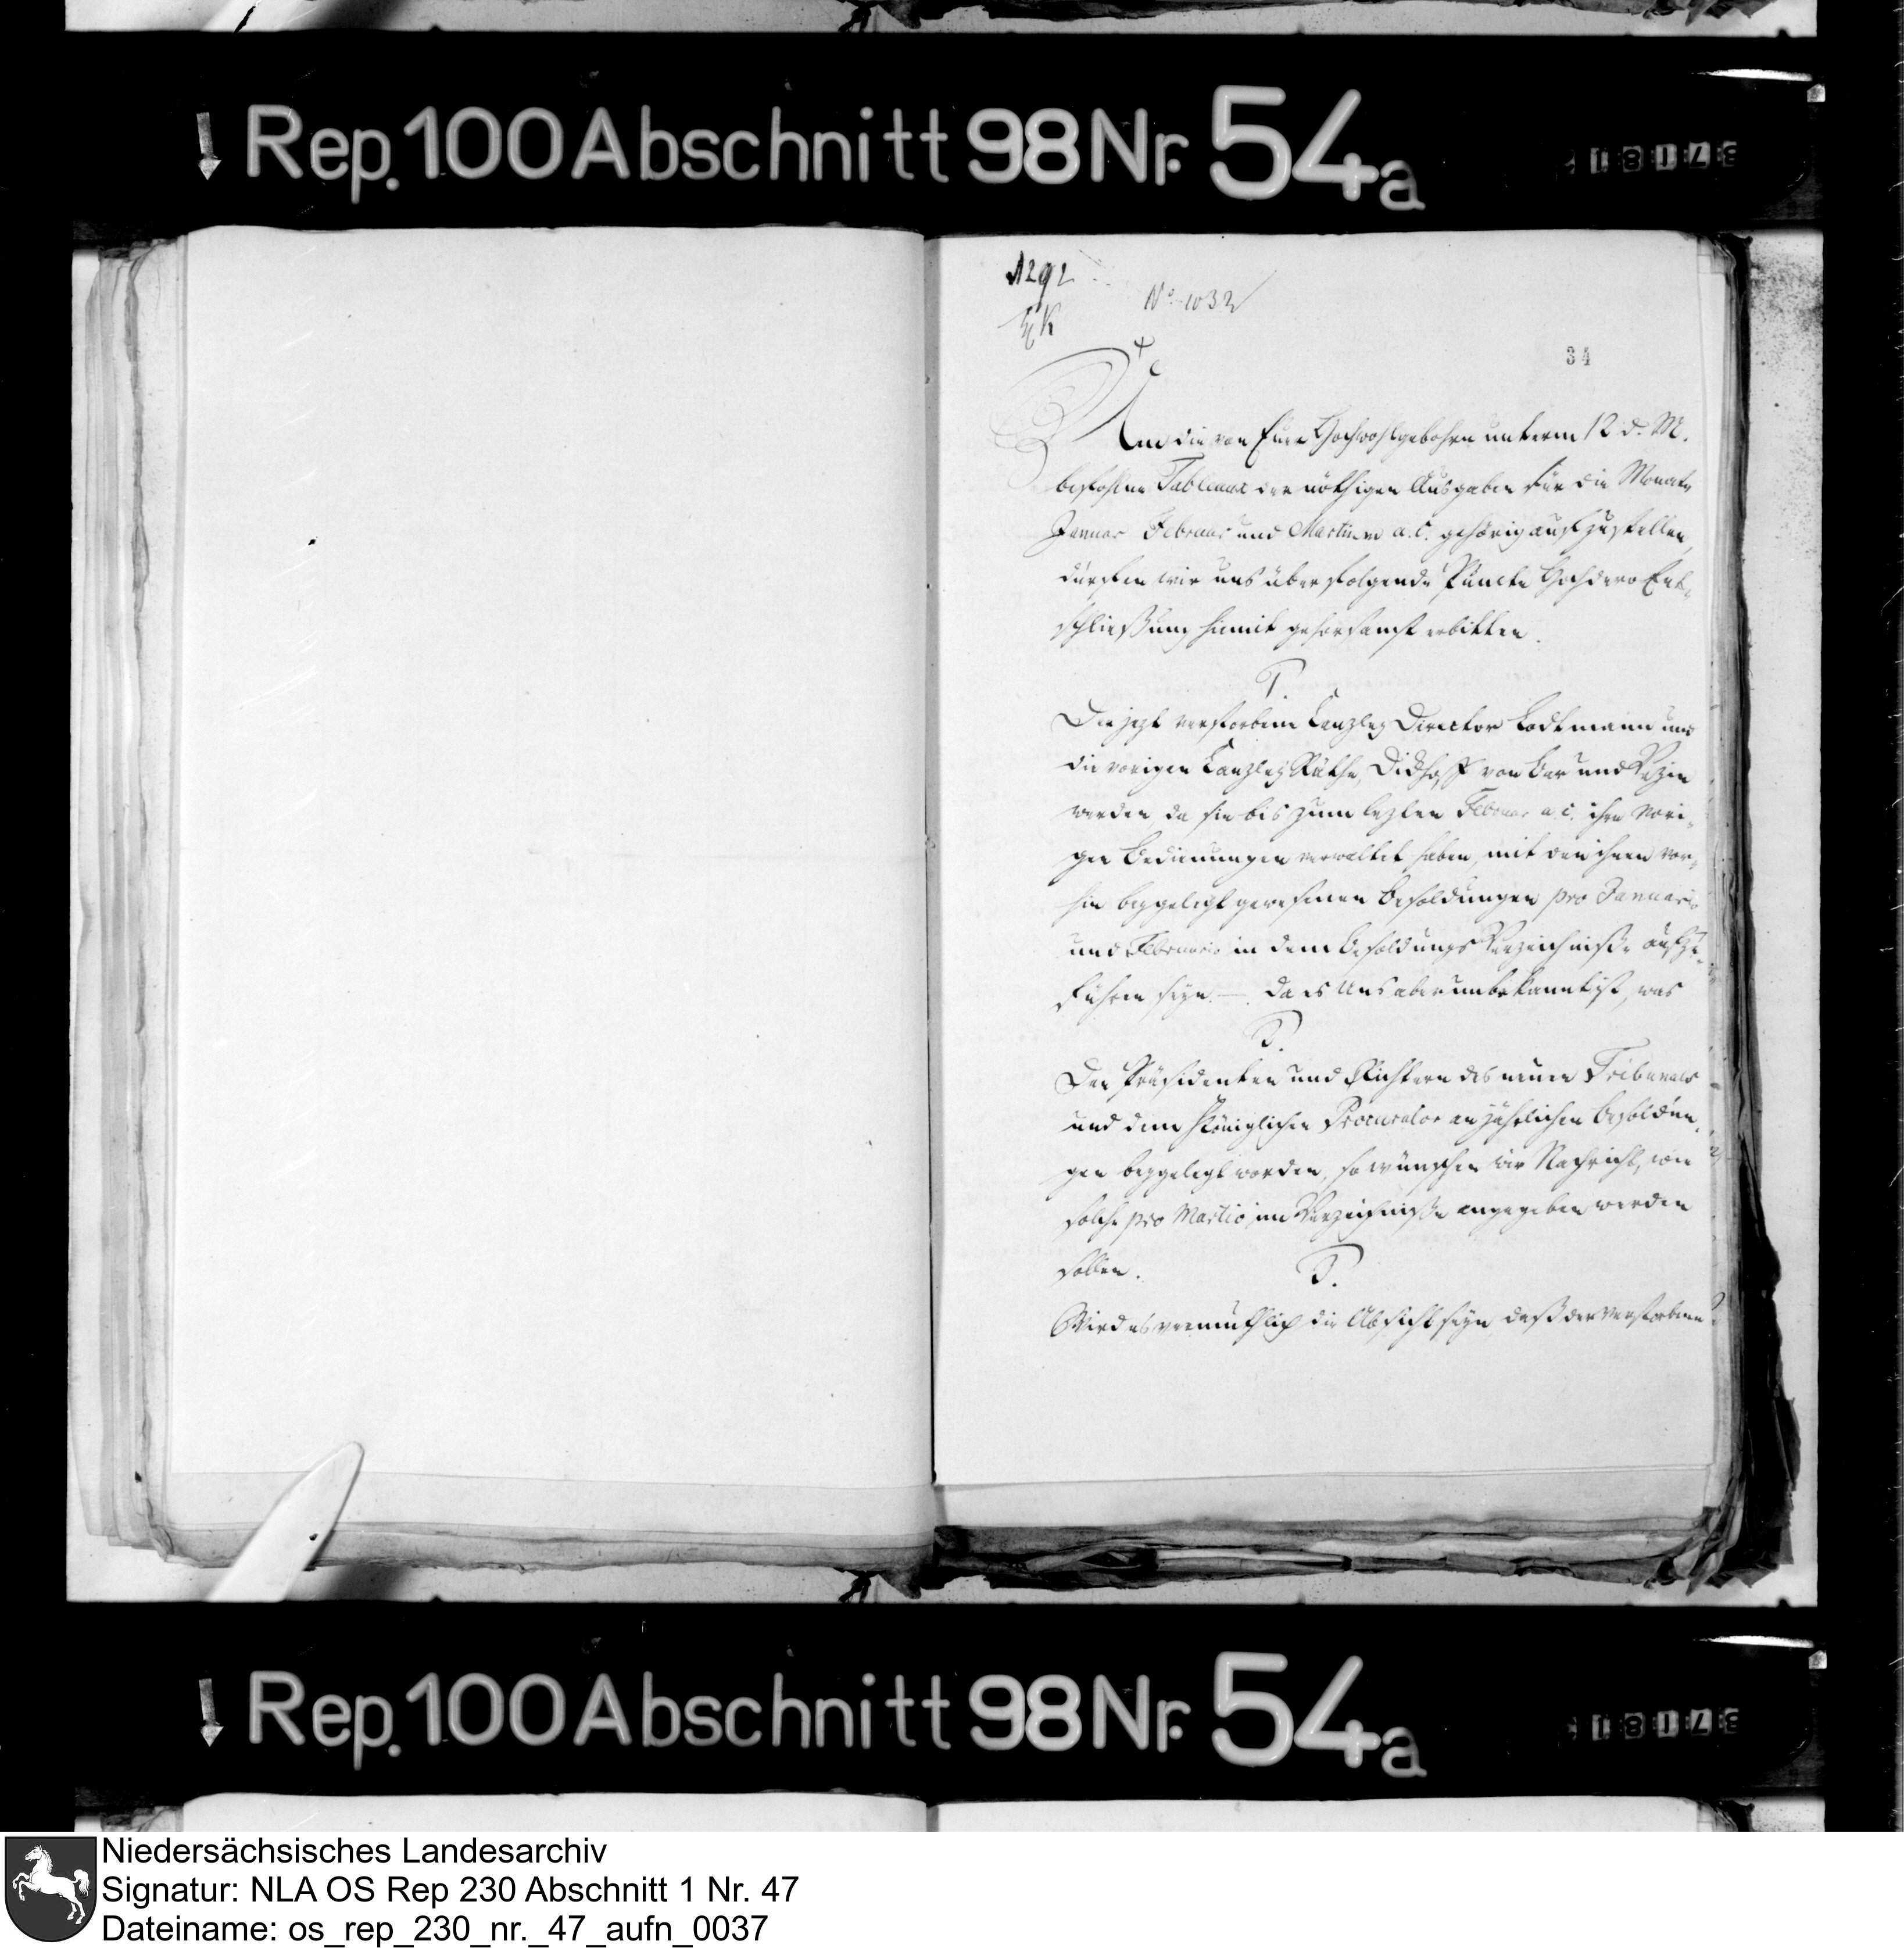 Rep. 100 Abschnitt 98 Nr. 54a
1292
No. 1032
34
Um die von Eure Hochwohlgebohren unterm 12 d. M.
befohlne Tableaux der nöthigen Ausgaben für die Monate
Januar Februar und Martium a. c. gehörig aufzustellen,
dürfen wir uns über folgende Puncte Hochdero Ent-
schließung hiemit gehorsamst erbitten.
1.
Die jezt verstorbene Canzley Director Lodtmann und
die vorigen Canzley Räthe, Dickhoff von Bar und Vezin
werden, da sie bis zum lezten Februar a. c. ihre vori-
gen Bedienungen verwaltet haben, mit den ihnen vor-
hin beygelegt gewesenen Besoldungen pro Januario
und Februario in dem Besoldungs Verzeichniße aufzu-
führen seyn. —. Da es uns aber unbekannt ist, was
2.
Den Präsidenten und Richtern des neuen Tribunals
und dem Königlichen Procurator an jährlichen Besoldun-
gen beygelegt worden, so wünschen wir Nachricht, wie
solche pro Martio im Verzeichniße angegeben werden
sollen.
3.
Wird es vermuthlich die Absicht seyn, daß der verstorbene
Rep. 100 Abschnitt 98 Nr. 54a
Niedersächsisches Landesarchiv
Signatur: NLA OS Rep 230 Abschnitt 1 Nr. 47
Dateiname: os_rep_230_nr._47_aufn_0037